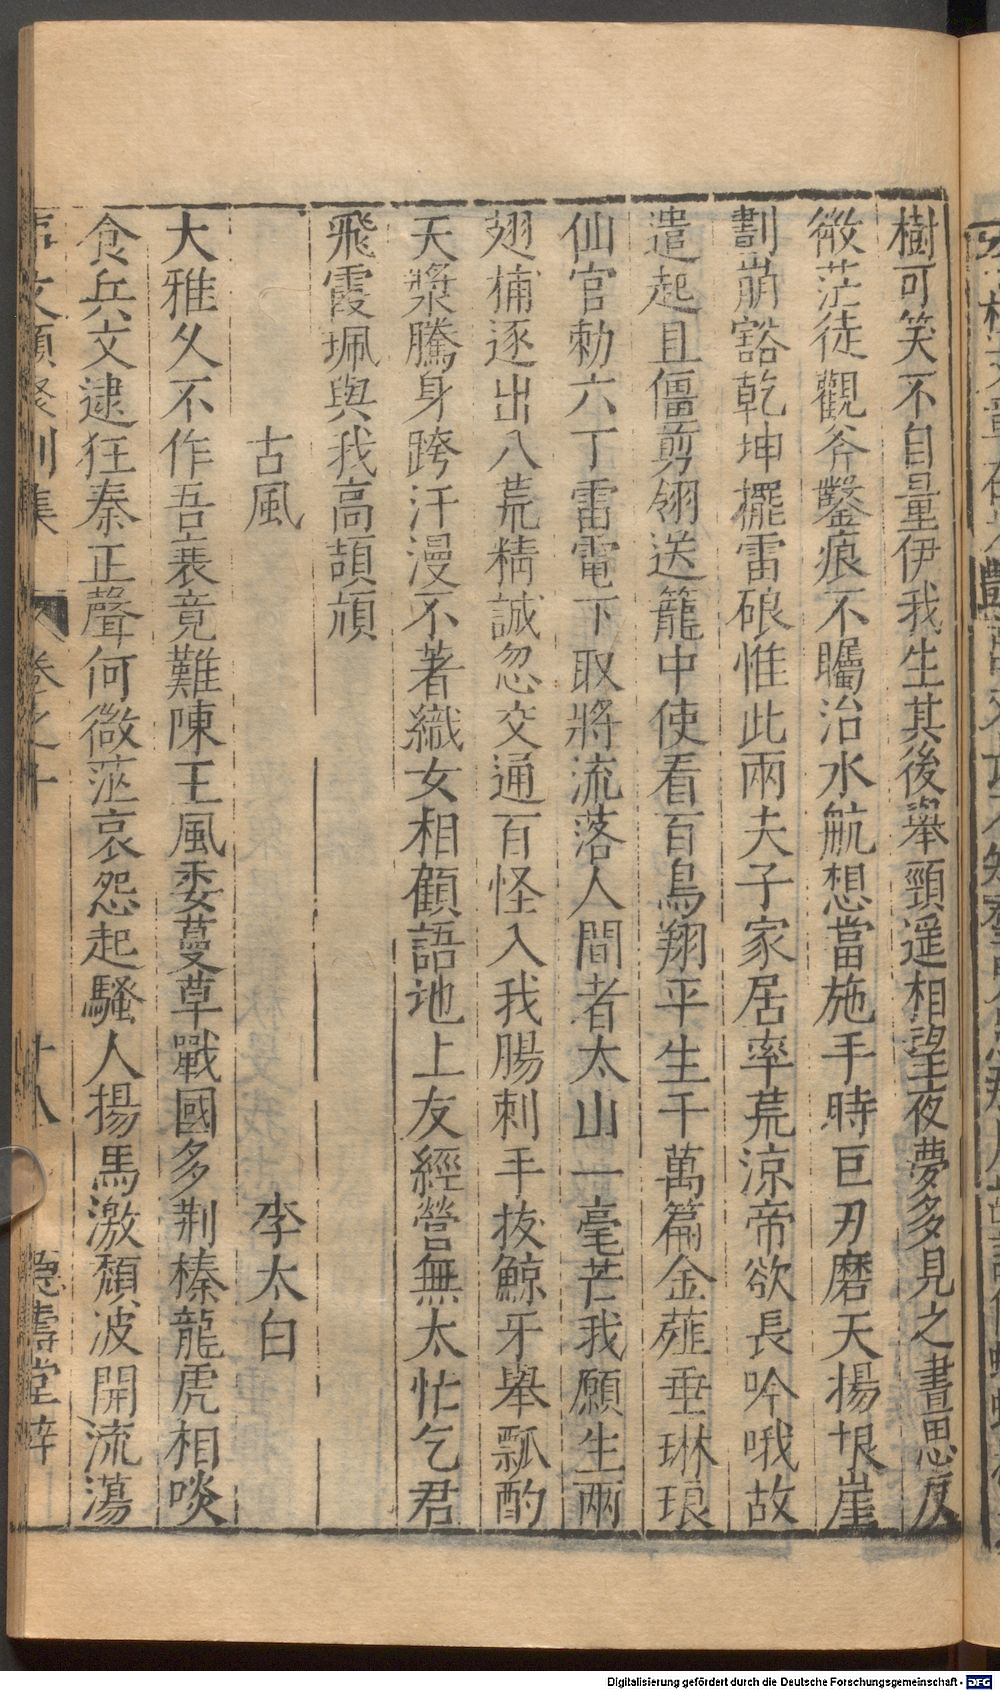 樹可笑不自量伊我生其後舉頸遥相望夜夢多見之晝思反
微茫徒觀斧鑿痕不矚治水航想當施手時巨刃磨天揚垠崖
劃崩豁乾坤擺雷硠惟此兩夫子家居率荒涼帝欲長吟哦故
遣起且僵剪翎送籠中使看百鳥翔平生千萬篇金薤垂琳琅
仙官勅六丁雷電下取將流落人間者太山一毫芒我願生兩
翅捕逐出八荒精誠忽交通百怪入我腸刺手拔鯨牙舉瓢酌
天漿騰身跨汗漫不著織女相顧語地上友經營無太忙乞君
飛霞珮與我高頡頏
古風　李太白
大雅久不作吾衰竟難陳王風委蔓草戰國多荆榛龍虎相啖
食兵文逮狂秦正聲何微茫哀怨起騷人揚馬激頹波開流蕩
文類聚別集　卷之十　十八　德壽堂梓
Digitalisierung gefördert durch die Deutsche Forschungsgemeinschaft - DFG